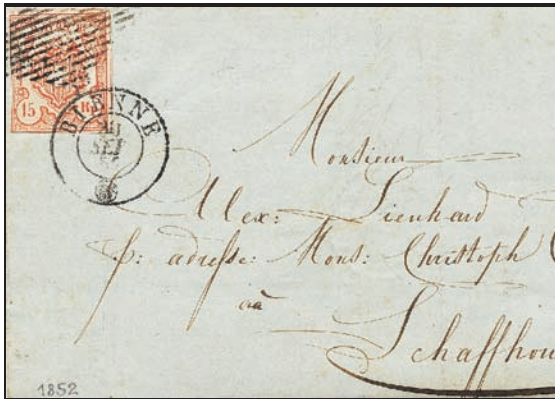 15 R
BIENNE
SEP
Monsieur
Alex: Lienhard
p: adresse: Mons: Christoph
à
Schaffhou
1852